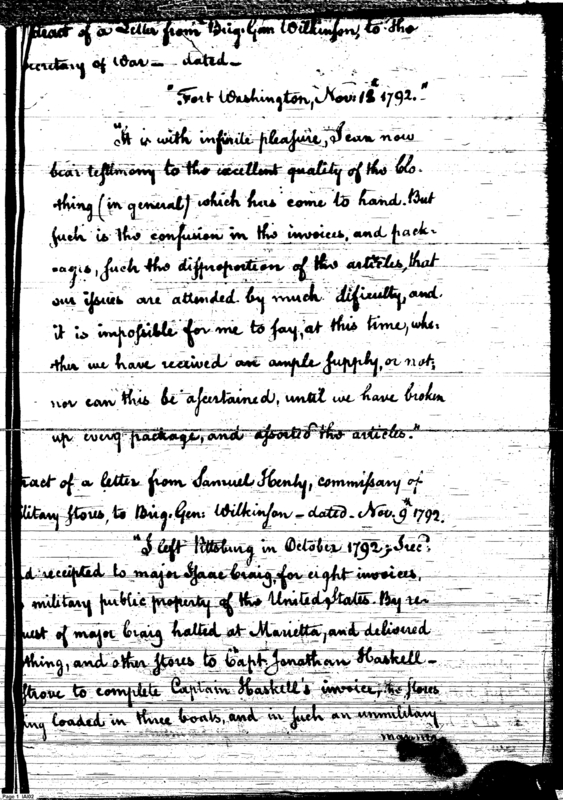 tract of a Letter from Brig. Gen Wilkinson, to the
ecretary of War — dated —
"Fort Washington, Nov. 13th 1792."
"It is with infinite pleasure, I can now
bear testimony to the excellent quality of the clo-
thing (in general) which has come to hand. But
such is the confusion in the invoices, and pack-
ages, such the disproportion of the articles, that
our issues are attended by much dificulty, and
it is impossible for me to say, at this time, whe-
ther we have received an ample supply, or not;
nor can this be ascertained, until we have broken
up every package, and assorted the articles."
tract of a letter from Samuel Henly, commissary of
ilitary stores, to Brig. Gen: Wilkinson — dated — Nov. 9th 1792.
"I left Pittsburg in October 1792; I recd.
d receipted to major Isaac Craig, for eight invoices,
military public property of the United States. By re-
uest of major Craig halted at Marietta, and delivered
thing, and other stores to Capt. Jonathan Haskell —
strove to complete Captain Haskell's invoice; the stores
ing loaded in three boats, and in such an unmilitary
manner
Page 1 IAI02